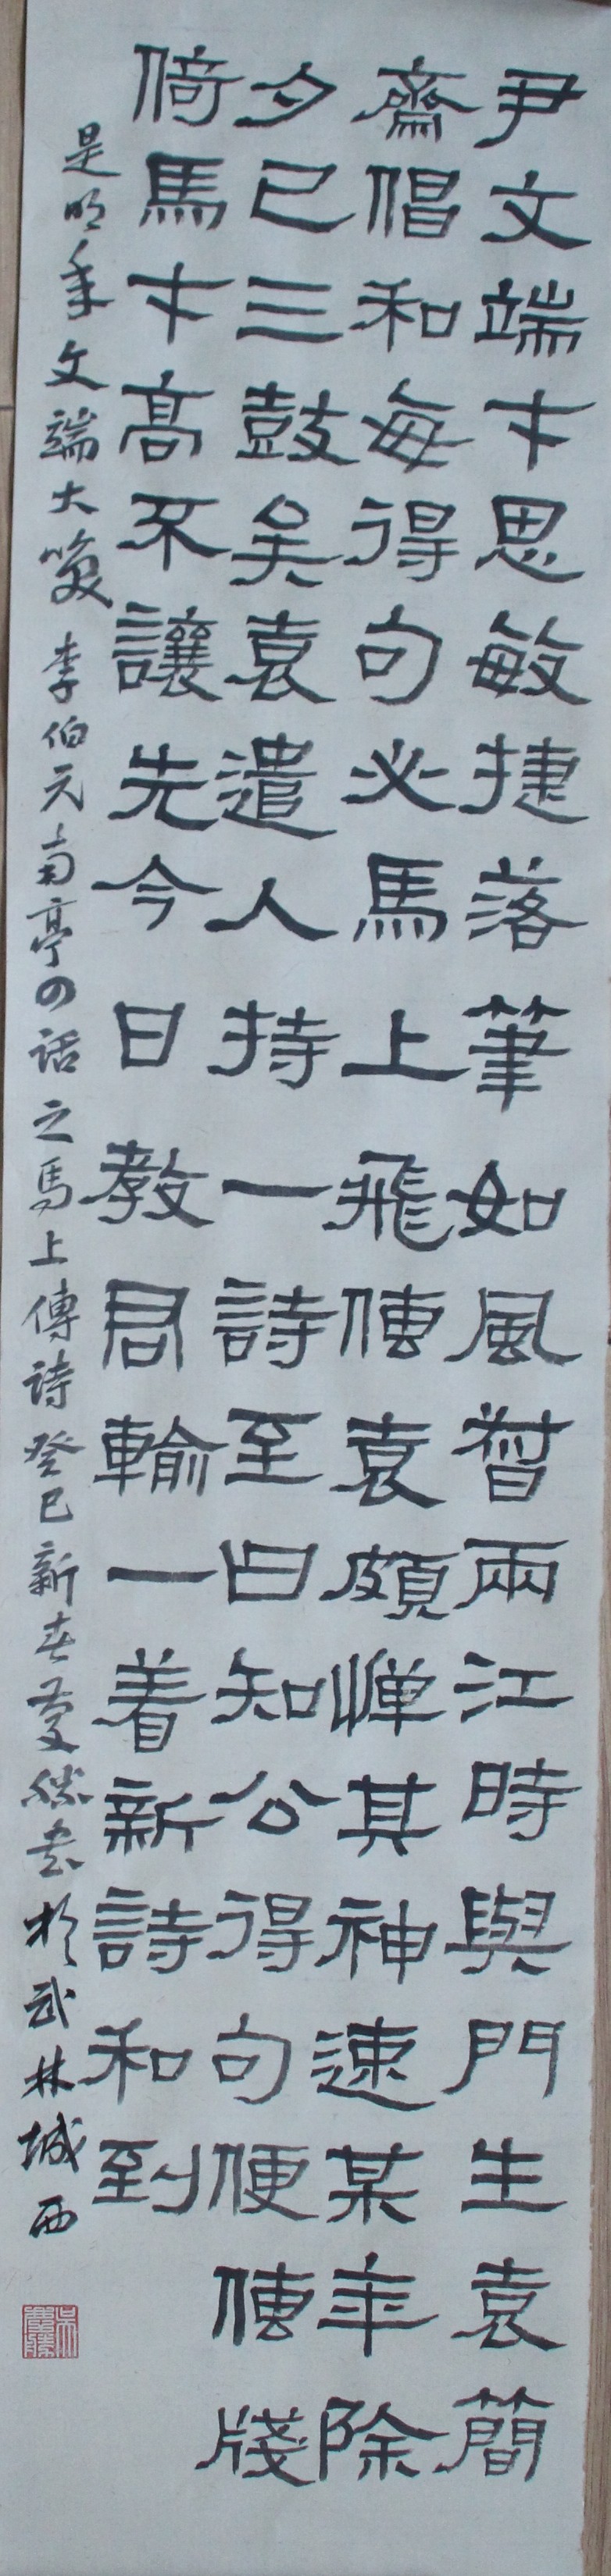 尹文端才思敏捷落筆如風督兩江時與門生袁簡
齋倡和每得句必馬上飛傳袁頗憚其神速某年除
夕已三鼓矣袁遣人持一詩至曰知公得句便傳牋
倚馬才高不讓先今日教君輸一着新詩和到
是明年文端大笑 李伯元南亭四話之馬上傳詩 癸巳新春慶勝書於武林城西
吳慶勝